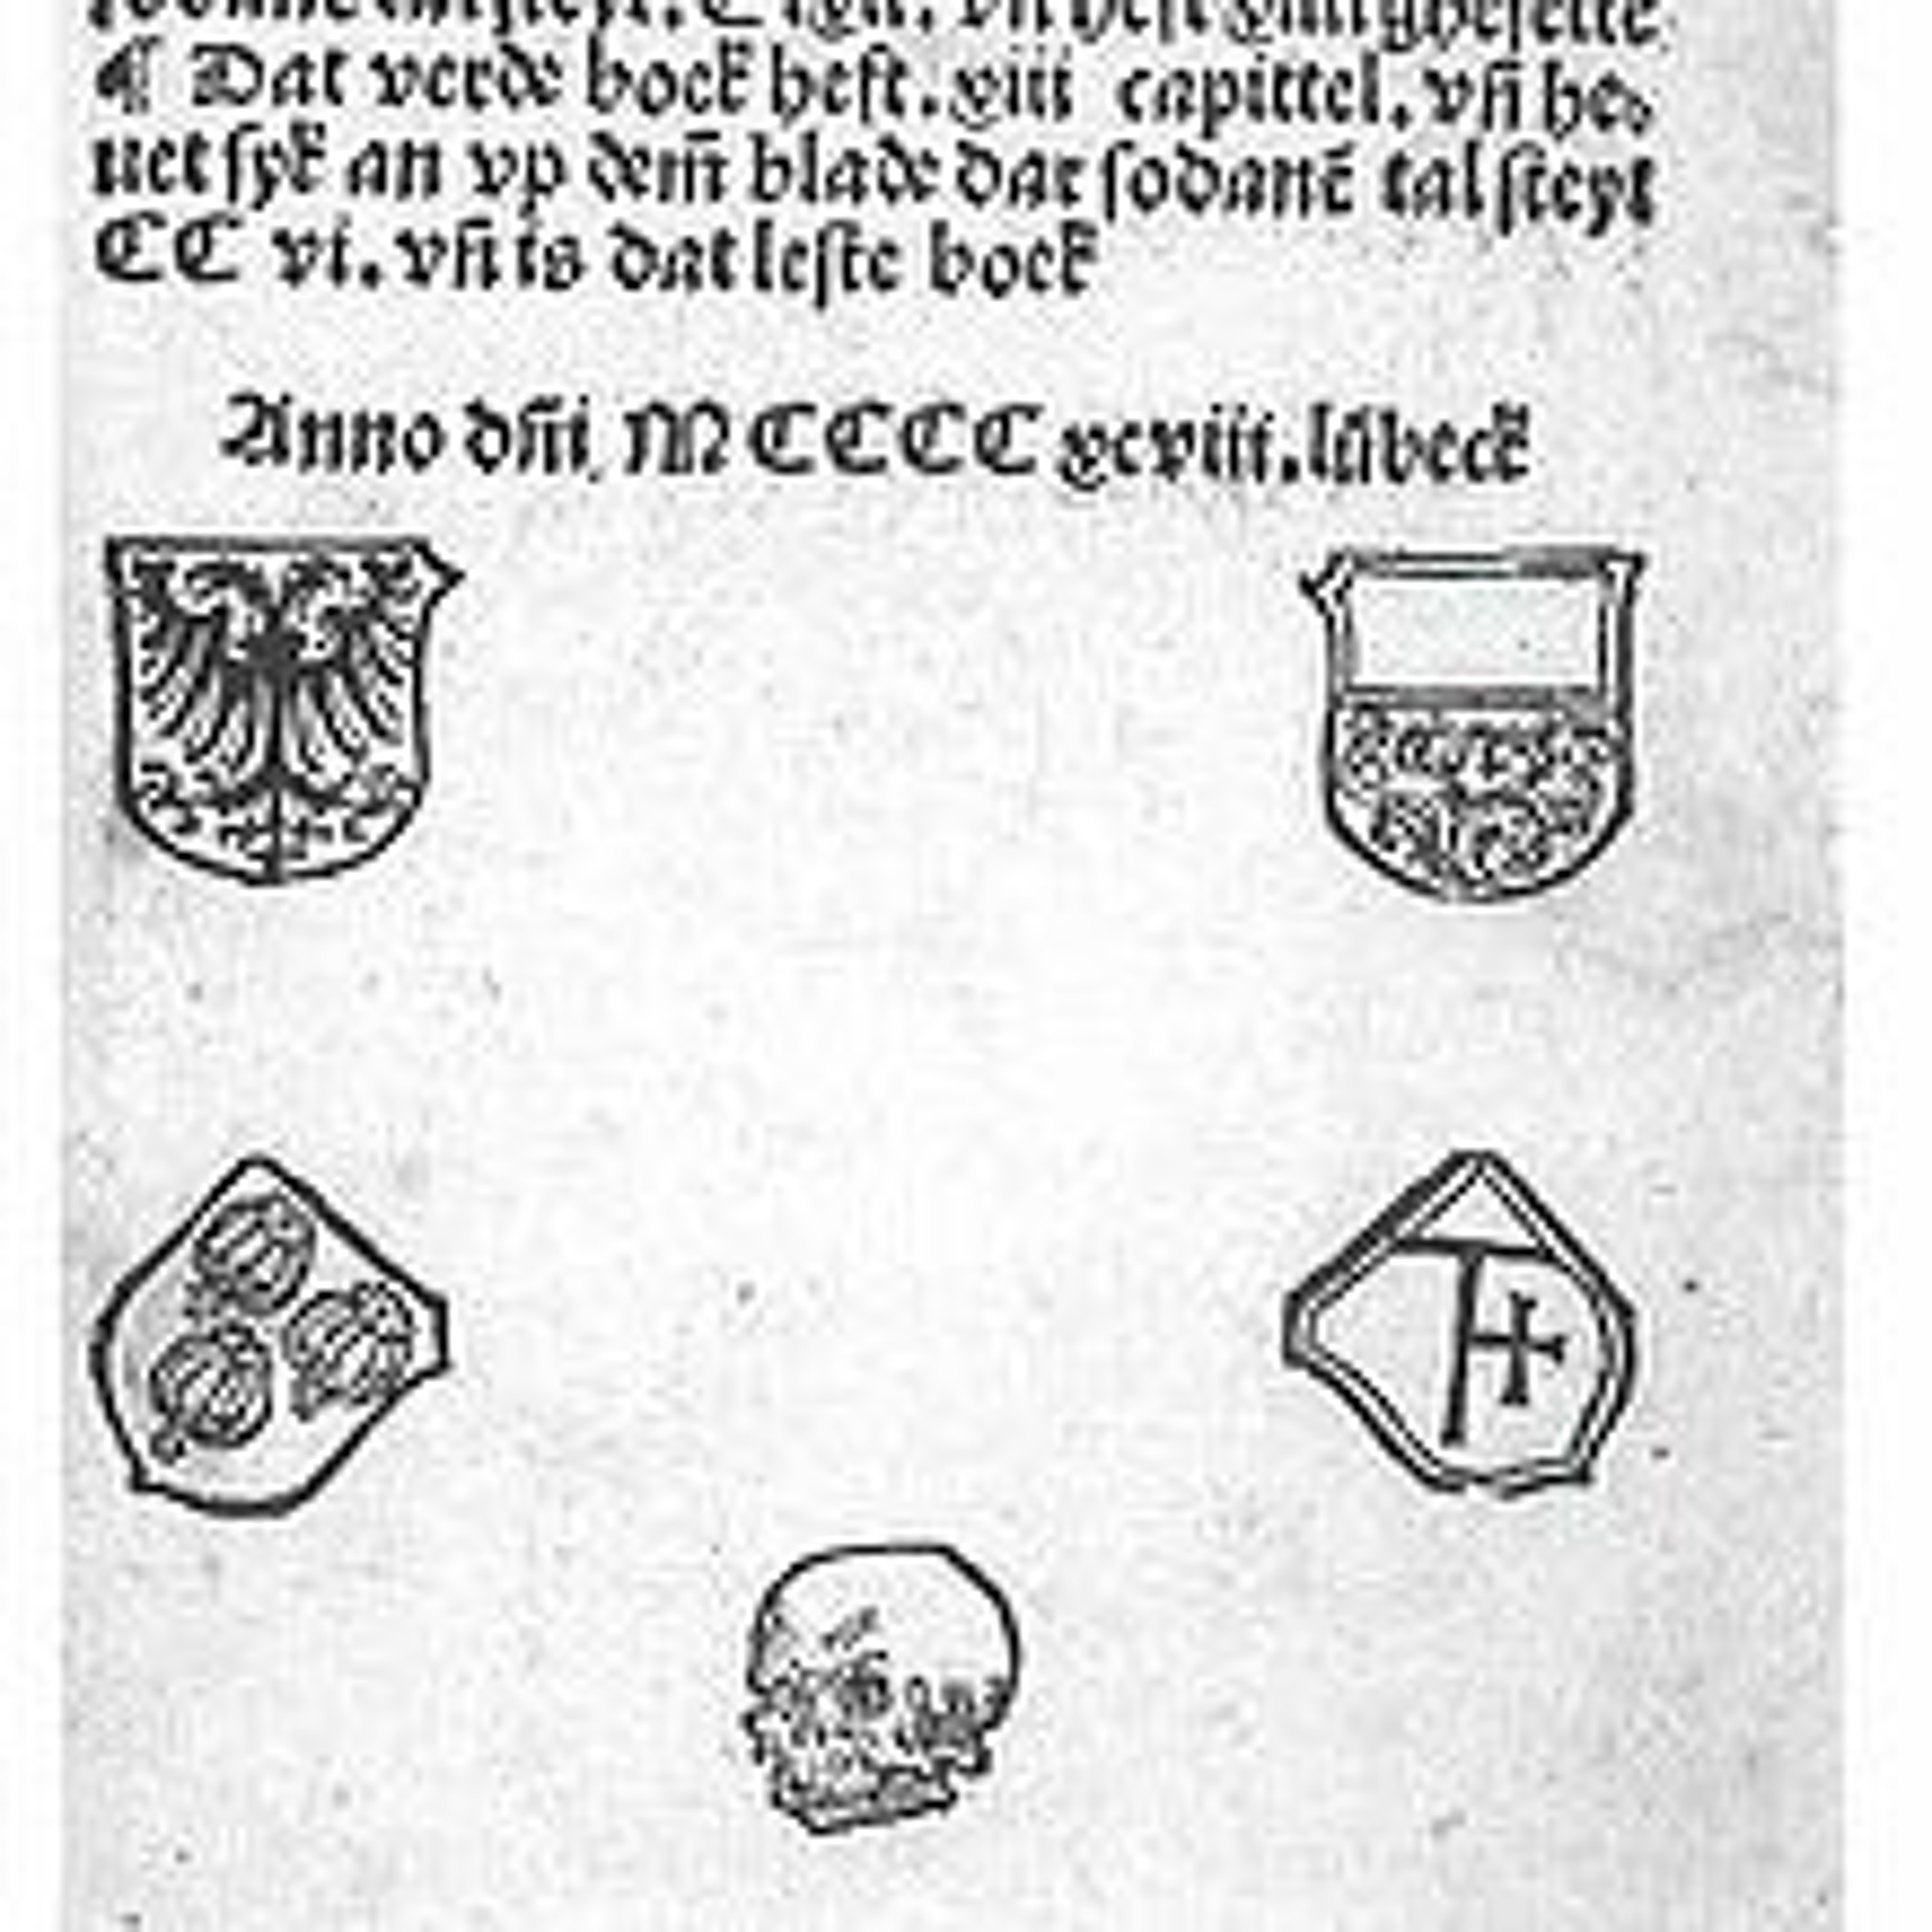 ¶ Dat verde boek heft. xiii capittel. vñ he⸗
uet ſyk an vp dem̄ blade dar ſodanē tal ſteyt
CC vi. vñ is dat leſte boek
Anno dñi MCCCC xcviii. lübeck